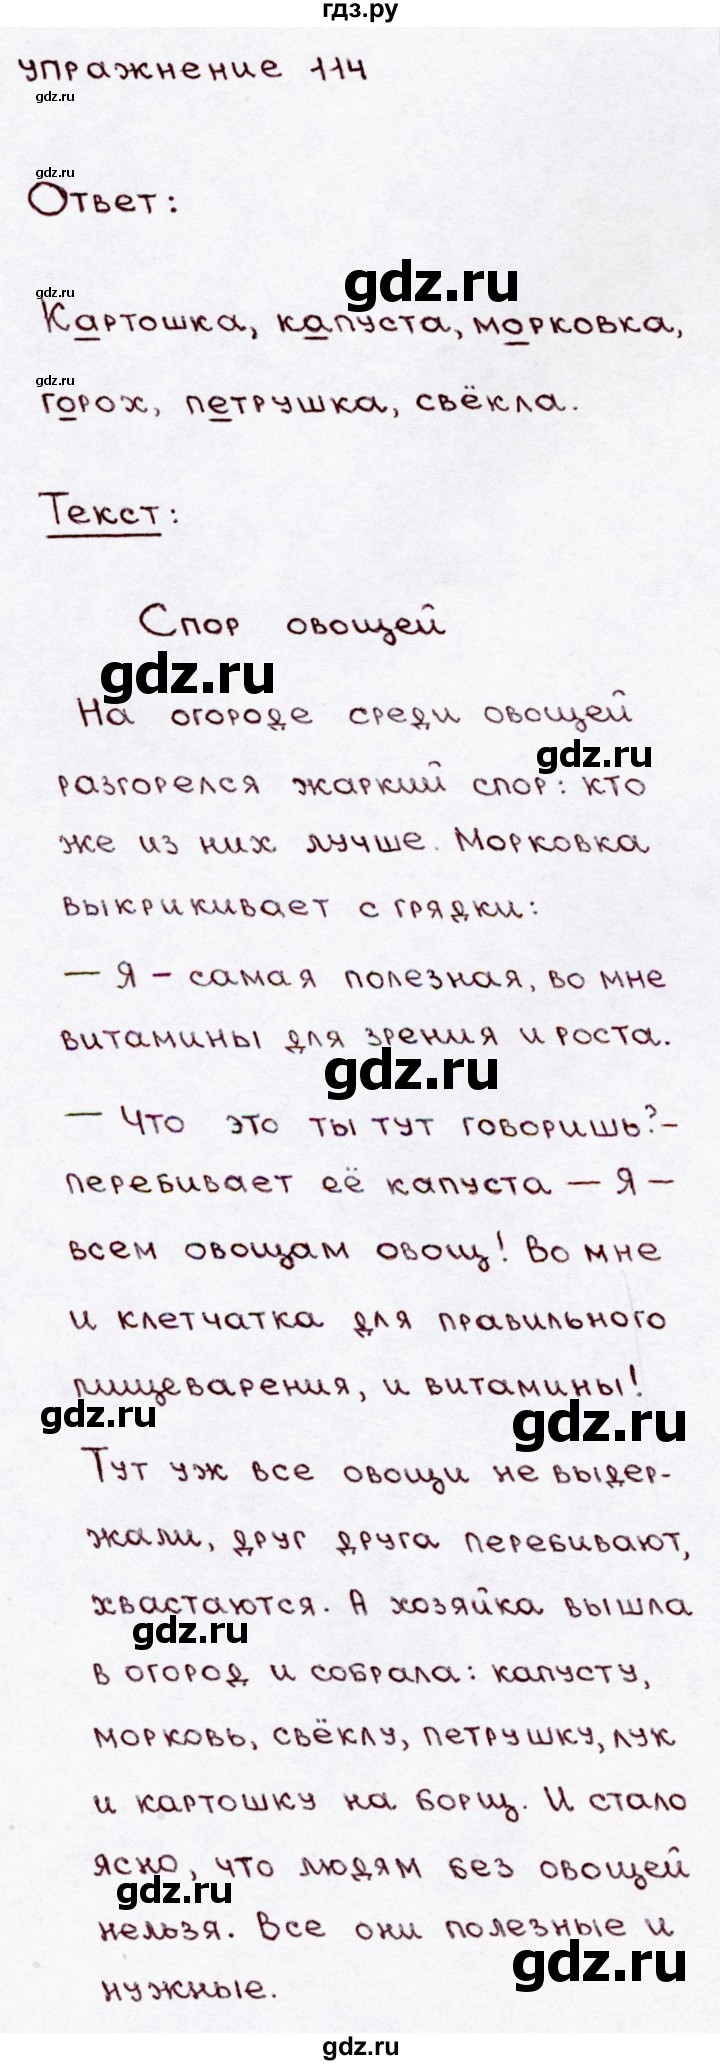 гдз.ру
упражнение 114
gdz.ru
gdz.ru
Ответ:
gdz.ru
gdz.ru
Картошка, капуста, морковка,
gdz.ru
горох, петрушка, свёкла.
Текст:
Спор овощей
gdz.ru
На огороде среди овощей
gdz.ru
разгорелся жаркий спор: кто
же из них лучше. Морковка
выкрикивает с грядки:
— Я – самая полезная, во мне
витамины для зрения и роста.
gdz.ru
— Что это ты тут говоришь? –
перебивает её капуста — Я —
всем овощам овощ! Во мне
и клетчатка для правильного
пищеварения, и витамины!
gdz.ru
gdz.ru
Тут уж все овощи не выдер-
жали, друг друга перебивают,
хвастаются. А хозяйка вышла
gdz.ru
в огород и собрала: капусту,
морковь, свёклу, петрушку, лук
и картошку на борщ. И стало
ясно, что людям без овощей
gdz.ru
нельзя. Все они полезные и
gdz.ru
нужные.
gdz.ru